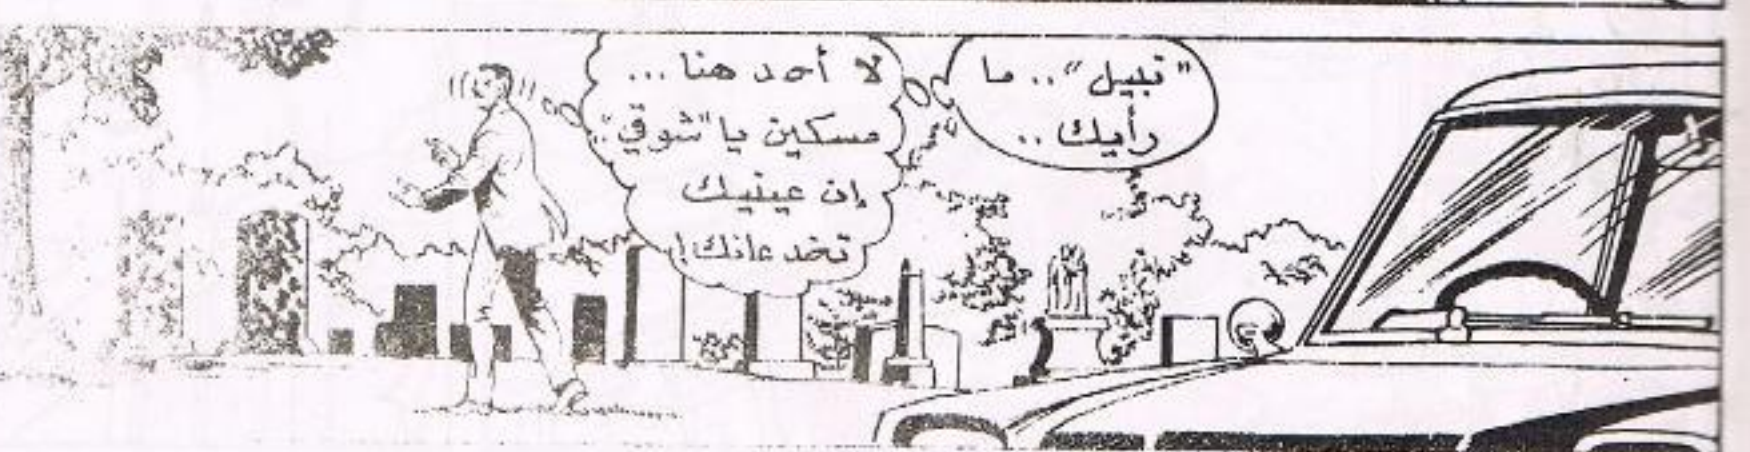 "نبيل".. ما
رأيك..
لا أحد هنا...
مسكين يا "شوقي"..
إن عينيك
تخدعانك!